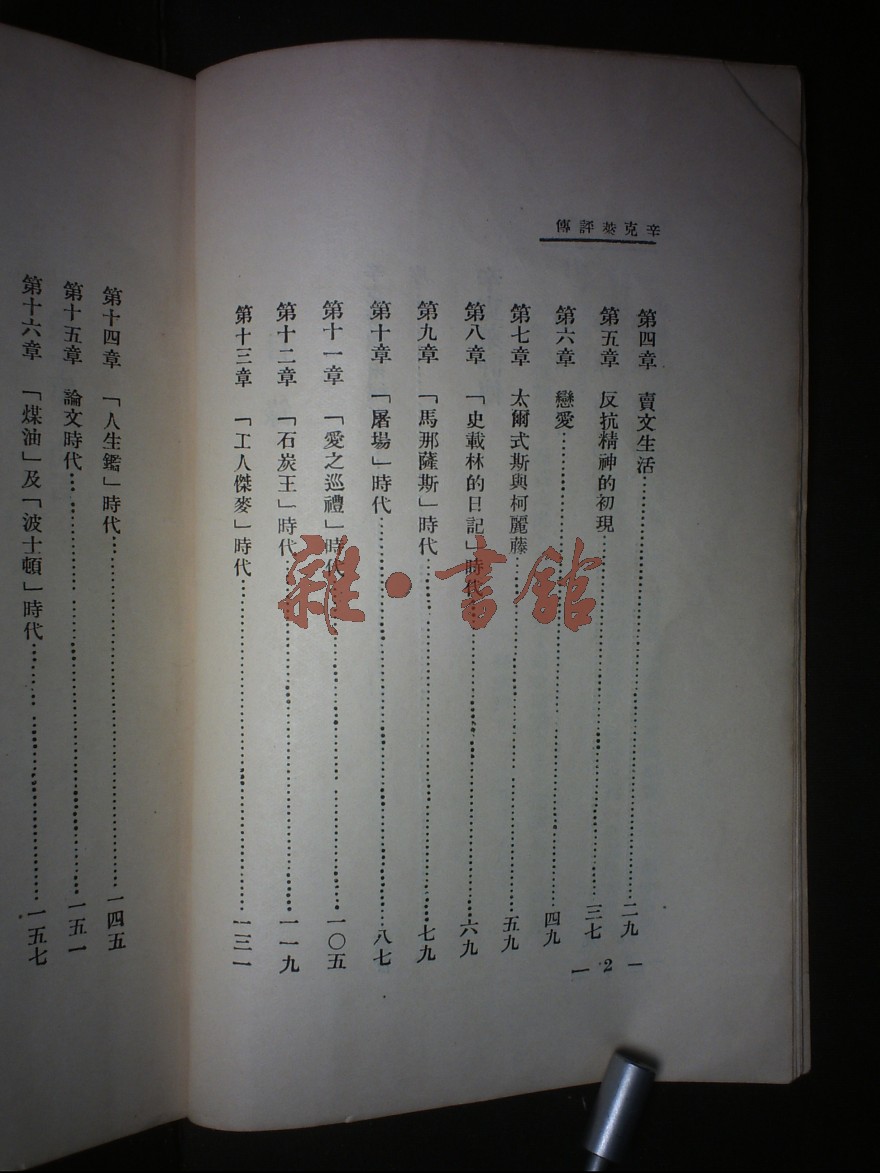 辛克萊評傳
第四章 賣文生活……二九
第五章 反抗精神的初現……三七
第六章 戀愛……四九
第七章 太爾式斯與柯麗藤……五九
第八章 「史載林的日記」時代……六九
第九章 「馬那薩斯」時代……七九
第十章 「屠場」時代……八七
第十一章 「愛之巡禮」時代……一〇五
第十二章 「石炭王」時代……一一九
第十三章 「工人傑麥」時代……一三一
— 2 —
第十四章 「人生鑑」時代……一四五
第十五章 論文時代……一五一
第十六章 「煤油」及「波士頓」時代……一五七
雜·書館